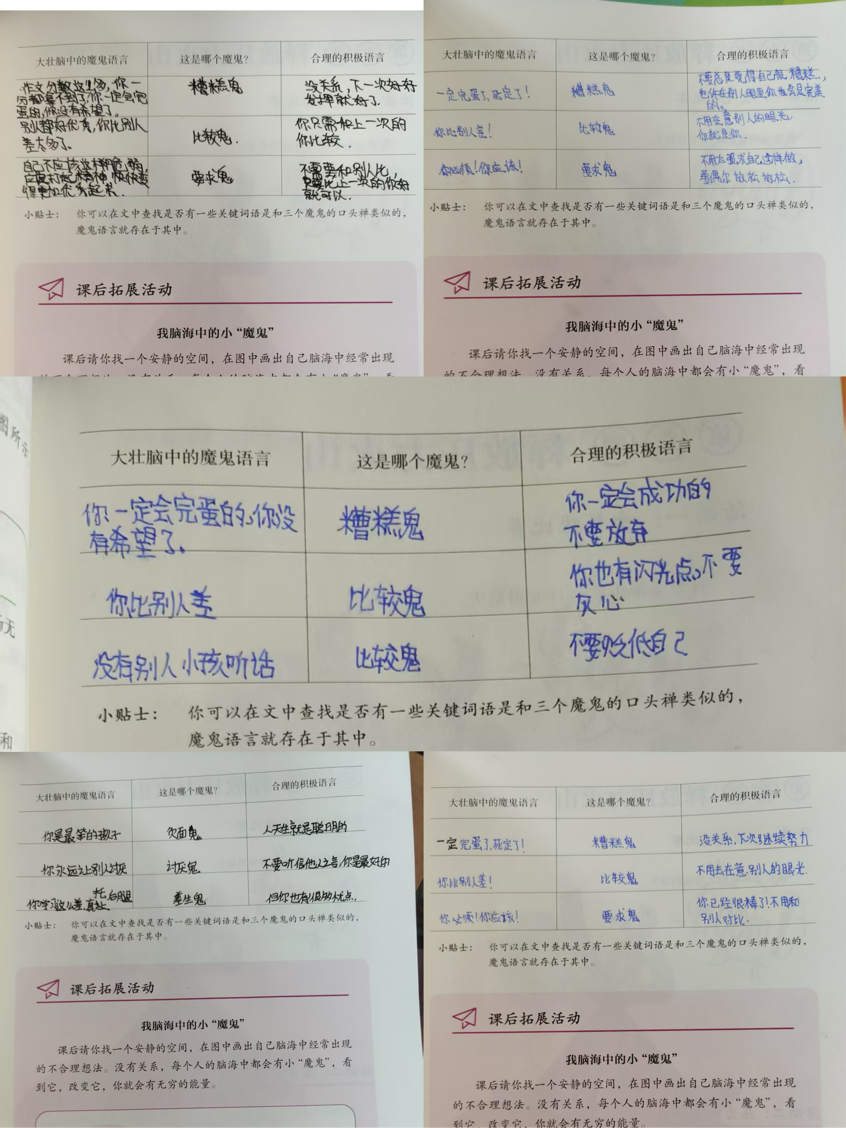 大壮脑中的魔鬼语言 这是哪个魔鬼? 合理的积极语言
作文分数这么少,你一
分都拿不到了,你一定会完
蛋的,你没有希望了。
糟糕鬼
没关系,下一次好好
发挥就好了。
别人都好优秀,你比别人
差太多了。
比较鬼.
你只需和上一次的
你比较.
自己不应该这样
要求鬼
不需要和别人比,
只要比上一次的你好
就可以.
小贴士: 你可以在文中查找是否有一些关键词语是和三个魔鬼的口头禅类似的,
魔鬼语言就存在于其中。
课后拓展活动
我脑海中的小“魔鬼”
课后请你找一个安静的空间,在图中画出自己脑海中经常出现
大壮脑中的魔鬼语言 这是哪个魔鬼? 合理的积极语言
一定完蛋了,死定了!
糟糕鬼
不要总是觉得自己很糟糕,
也许在别人眼里你也会是完美
的。
你比别人差!
比较鬼
不用在意别人的眼光,
你就是你.
你必须!你应该!
要求鬼
不用去要求自己这样做,
要偶尔放松放松.
小贴士: 你可以在文中查找是否有一些关键词语是和三个魔鬼的口头禅类似的,
魔鬼语言就存在于其中。
课后拓展活动
我脑海中的小“魔鬼”
课后请你找一个安静的空间,在图中画出自己脑海中经常出现
的不合理想法。没有关系,每个人的脑海中都会有小“魔鬼”,看
大壮脑中的魔鬼语言 这是哪个魔鬼? 合理的积极语言
你一定会完蛋的,你没
有希望了。
糟糕鬼
你一定会成功的
不要放弃
你比别人差
比较鬼
你也有闪光点,不要
灰心
没有别人小孩听话
比较鬼
不要贬低自己
小贴士: 你可以在文中查找是否有一些关键词语是和三个魔鬼的口头禅类似的,
魔鬼语言就存在于其中。
大壮脑中的魔鬼语言 这是哪个魔鬼? 合理的积极语言
你是最笨的孩子
欠面鬼
人天生就是聪明的
你永远比别人讨厌
讨厌鬼
不要听信他人之言,你是最好的
你学习这么差,真
差生鬼
但你也有很多优点.
小贴士: 你可以在文中查找是否有一些关键词语是和三个魔鬼的口头禅类似的,
魔鬼语言就存在于其中。
课后拓展活动
我脑海中的小“魔鬼”
课后请你找一个安静的空间,在图中画出自己脑海中经常出现
的不合理想法。没有关系,每个人的脑海中都会有小“魔鬼”,看
到它,改变它,你就会有无穷的能量。
大壮脑中的魔鬼语言 这是哪个魔鬼? 合理的积极语言
一定完蛋了,死定了!
糟糕鬼
没关系,下次继续努力
你比别人差!
比较鬼
不用去在意别人的眼光.
你必须!你应该!
要求鬼
你已经很棒了!不用和
别人对比.
小贴士: 你可以在文中查找是否有一些关键词语是和三个魔鬼的口头禅类似的,
魔鬼语言就存在于其中。
课后拓展活动
我脑海中的小“魔鬼”
课后请你找一个安静的空间,在图中画出自己脑海中经常出现
的不合理想法。没有关系,每个人的脑海中都会有小“魔鬼”,看
到它,改变它,你就会有无穷的能量。